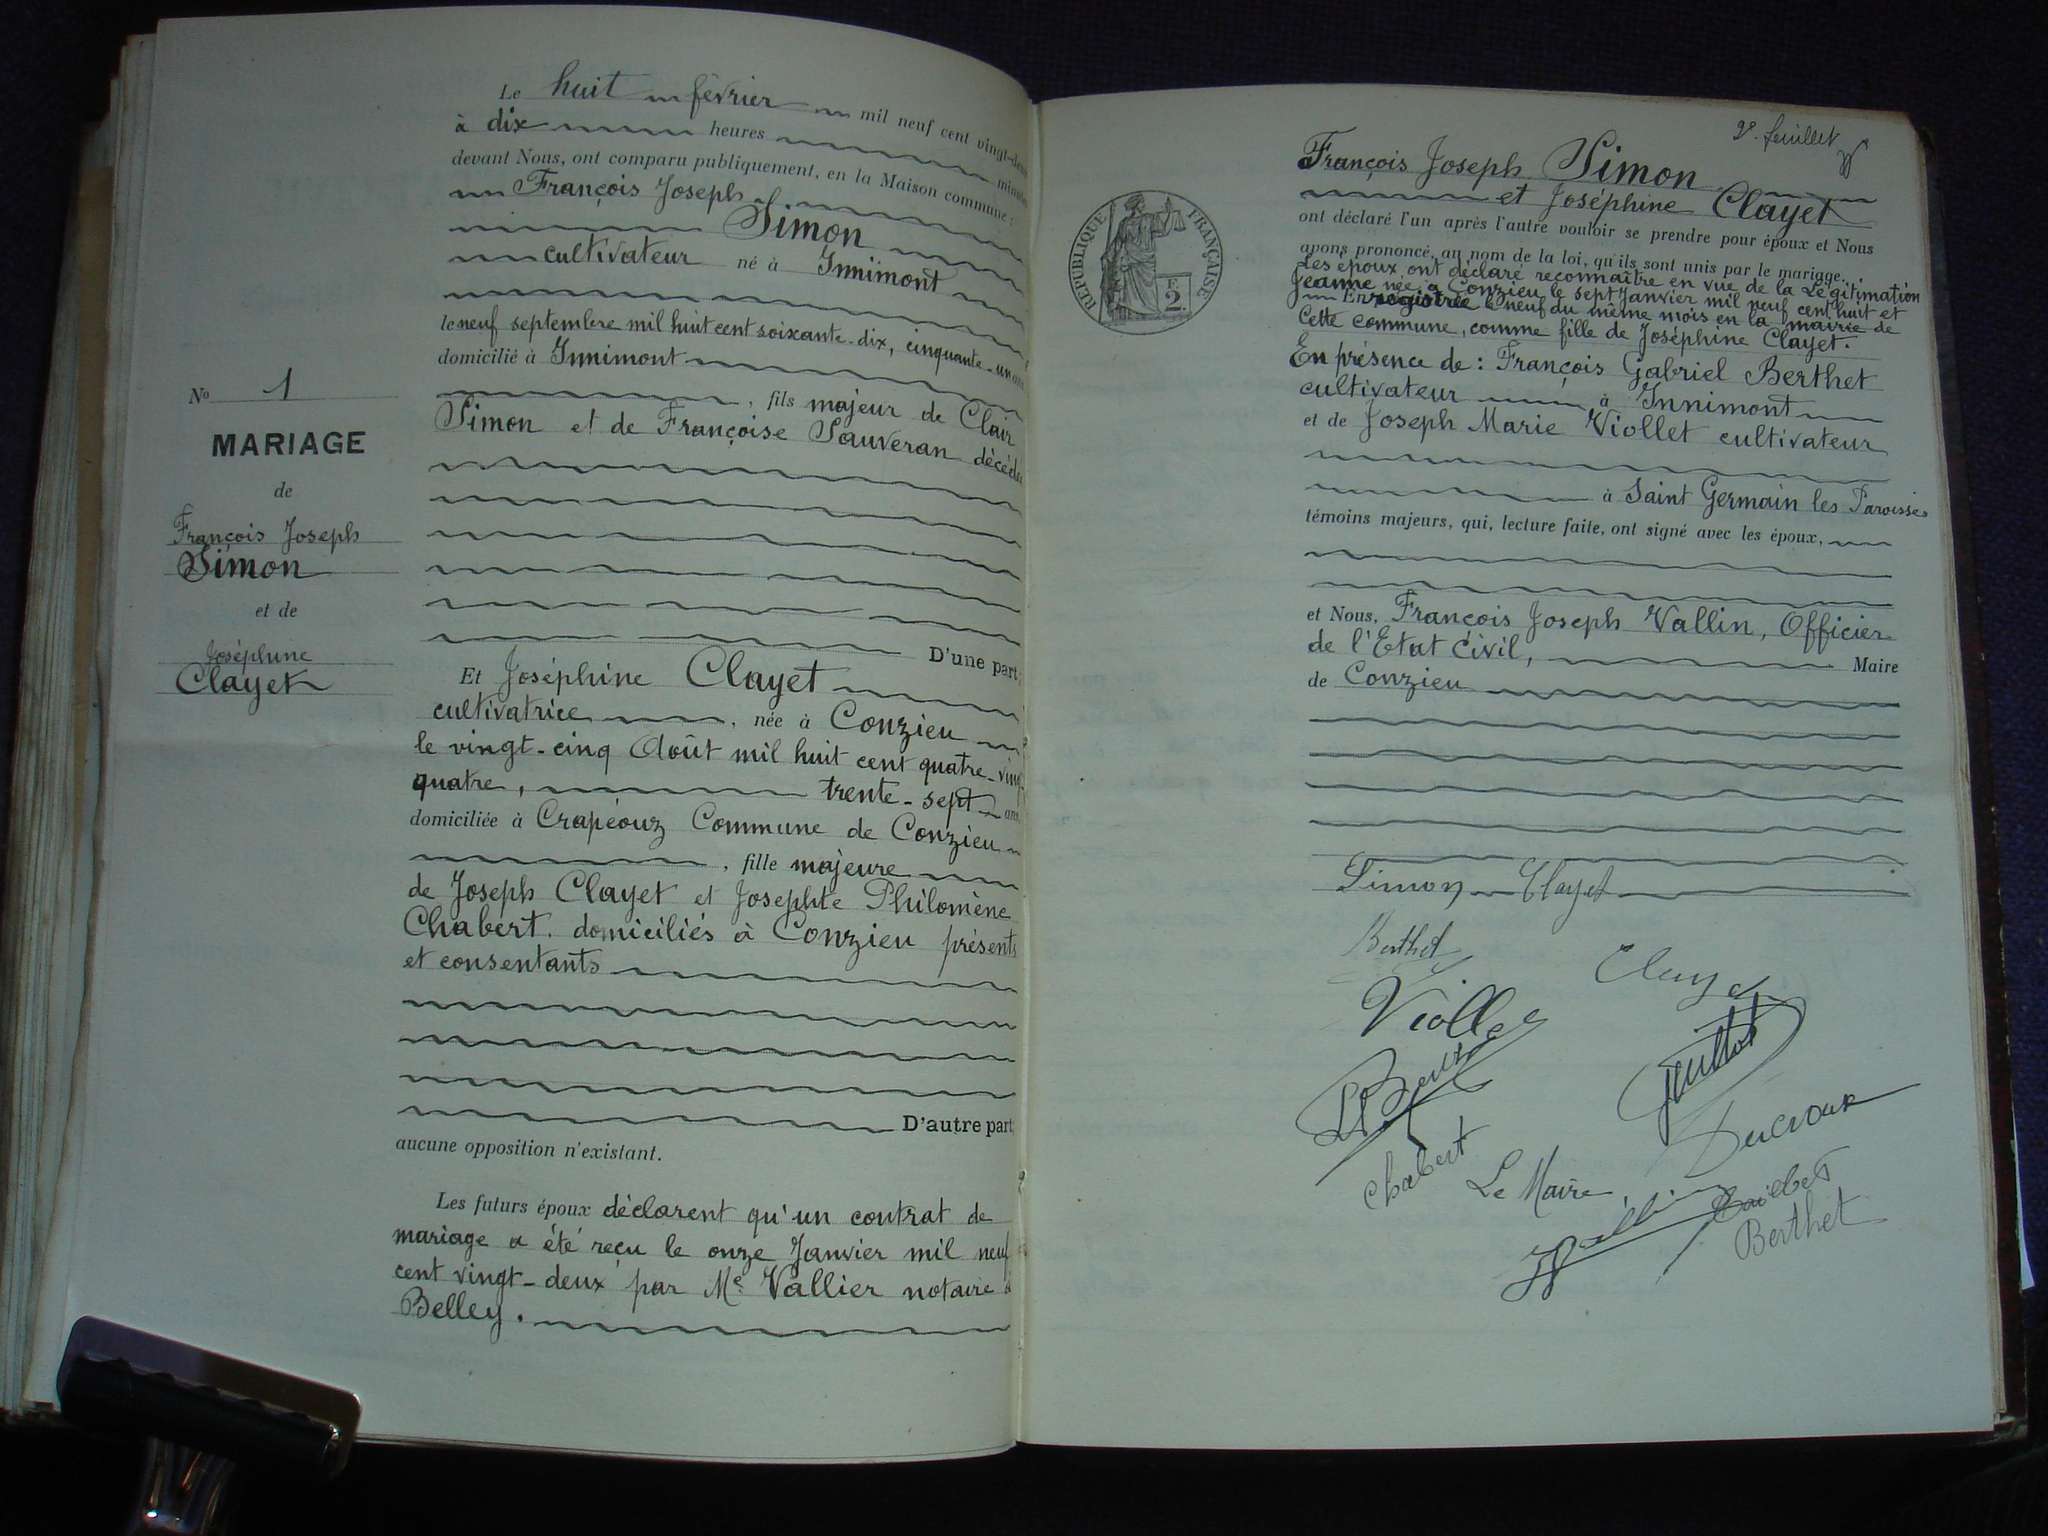 Le huit février mil neuf cent vingt-deux
à dix heures minutes
devant Nous, ont comparu publiquement, en la Maison commune :
François Joseph
Simon
cultivateur né à Innimont
le neuf septembre mil huit cent soixante-dix, cinquante-un ans
domicilié à Innimont
, fils majeur de Clair
Simon et de Françoise Sauveran décédés
D'une part;
Et Joséphine Clayet
cultivatrice , née à Conzieu
le vingt-cinq Août mil huit cent quatre-vingt
quatre, trente-sept ans
domiciliée à Crapéouz Commune de Conzieu
, fille majeure
de Joseph Clayet et Josephte Philomène
Chabert. domiciliés à Conzieu présents
et consentants
D'autre part
aucune opposition n'existant.
Les futurs époux déclarent qu'un contrat de
mariage a été reçu le onze Janvier mil neuf
cent vingt-deux par Me Vallier notaire à
Belley.
No 1
MARIAGE
de
François Joseph
Simon
et de
Joséphine
Clayet
2e feuillet
RÉPUBLIQUE FRANÇAISE
F.
2.
François Joseph Simon
et Joséphine Clayet
ont déclaré l'un après l'autre vouloir se prendre pour époux et Nous
avons prononcé, au nom de la loi, qu'ils sont unis par le mariage.
Les époux ont déclaré reconnaître en vue de la Légitimation
Jeanne née à Conzieu le sept Janvier mil neuf cent huit et
Enregistrée le neuf du même mois en la mairie de
Cette commune, comme fille de Joséphine Clayet.
En présence de : François Gabriel Berthet
cultivateur à Innimont
et de Joseph Marie Viollet cultivateur
à Saint Germain les Paroisses
témoins majeurs, qui, lecture faite, ont signé avec les époux,
et Nous, François Joseph Vallin, Officier
de l'Etat Civil, Maire
de Conzieu
Simon Clayet
Berthet Clayet
Viollet
Ducroux
Chabert Le Maire,
Vallin
Berthet